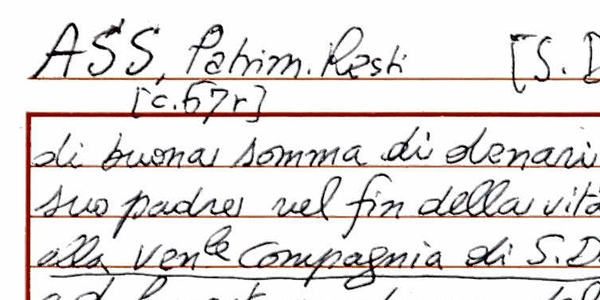 ASS, Patrim. Resti [S. D
[c.67r]
di buona somma di denari
suo padre nel fin della vita
alla ven^le Compagnia di S. D